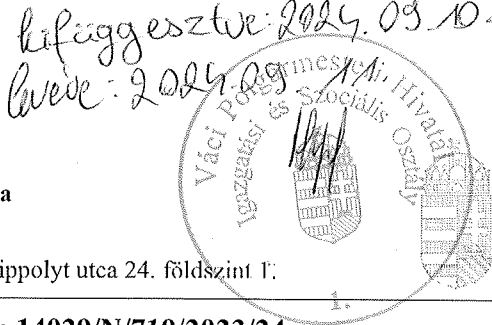 kifüggesztve: 2024. 09. 10.
levéve: 2024. 09. 11.
Váci Polgármesteri Hivatal
Igazgatási és Szociális Osztály
1.
a
ippolyt utca 24. földszint 1.
14020/N/710/2023/24